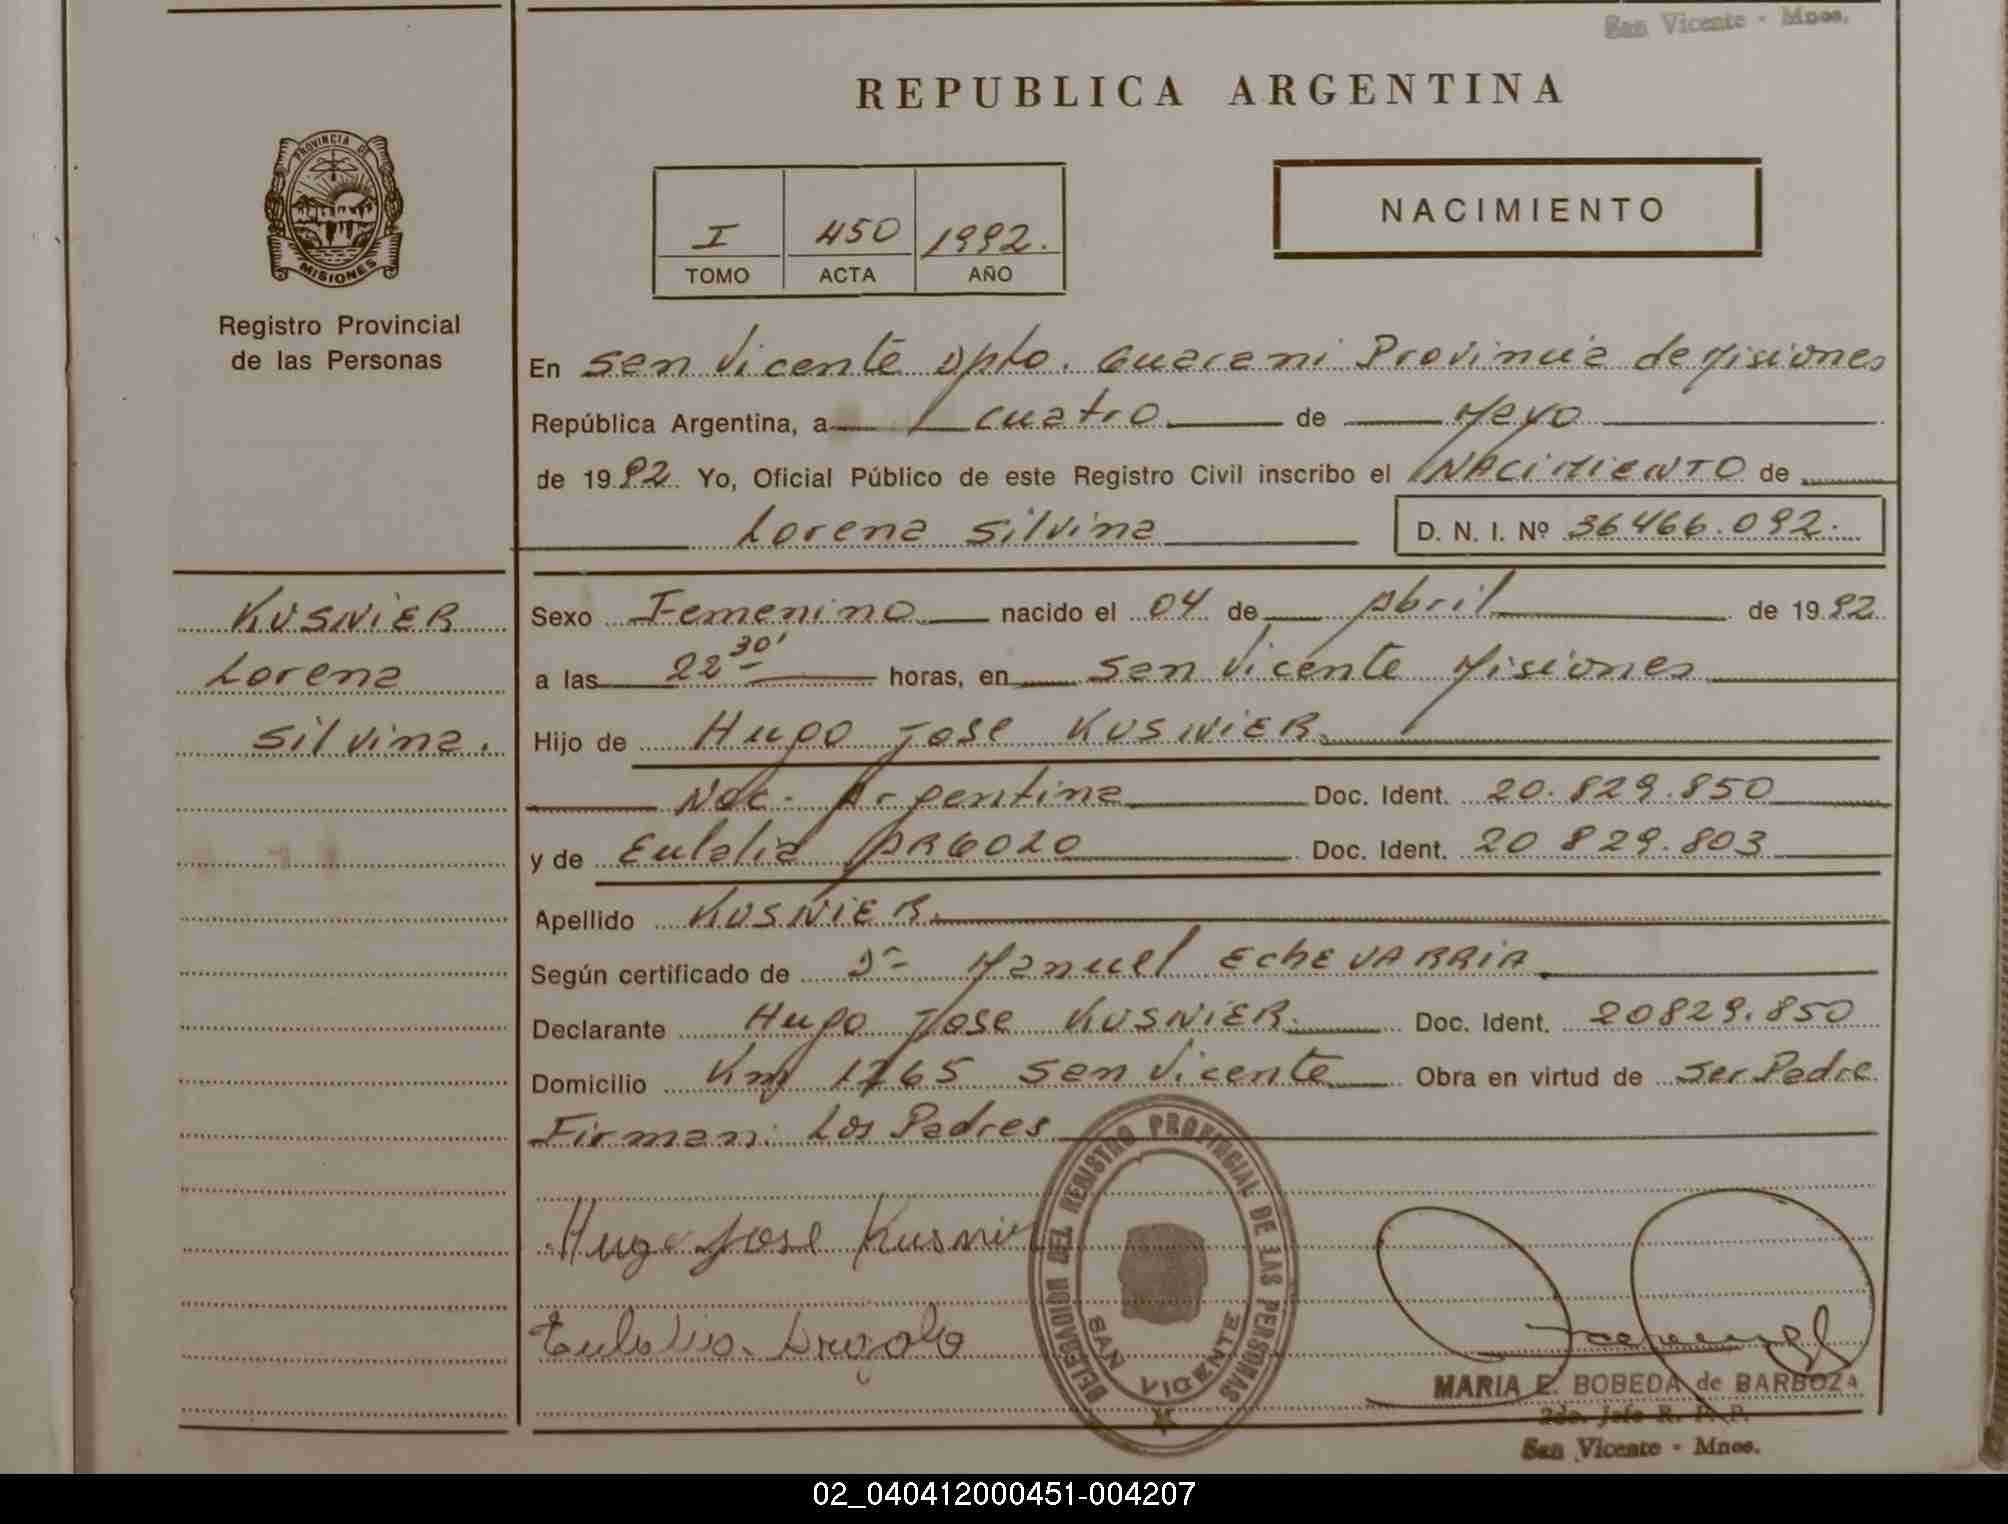 San Vicente - Mnes.
REPUBLICA ARGENTINA
PROVINCIA DE
MISIONES
Registro Provincial
de las Personas
I 450 1992.
TOMO ACTA AÑO
NACIMIENTO
En San Vicente Dpto. Guarani Provincia de Misiones
República Argentina, a cuatro de Mayo
de 1992. Yo, Oficial Público de este Registro Civil inscribo el NACIMIENTO de
Lorena Silvina D. N. I. Nº 36466.092.
KUSNIER
Lorena
Silvina.
Sexo Femenino nacido el 04 de Abril de 1992
a las 22 30' horas, en San Vicente Misiones
Hijo de Hugo Jose KUSNIER.
Nac. Argentina Doc. Ident. 20.829.850
y de Eulalia ARGOLO Doc. Ident. 20 829.803
Apellido KUSNIER.
Según certificado de Dr Manuel EchEVARRIA.
Declarante Hugo Jose KUSNIER. Doc. Ident. 20829.850
Domicilio Km 1265 San Vicente Obra en virtud de Ser Padre
Firman: Los Padres
Hugo Jose Kusnier
Eulalia Argolo
DELEGACION DEL REGISTRO PROVINCIAL DE LAS PERSONAS
SAN VICENTE
MARIA E. BOBEDA de BARBOZA
2do. Jefe R. P. P.
San Vicente - Mnes.
02_040412000451-004207